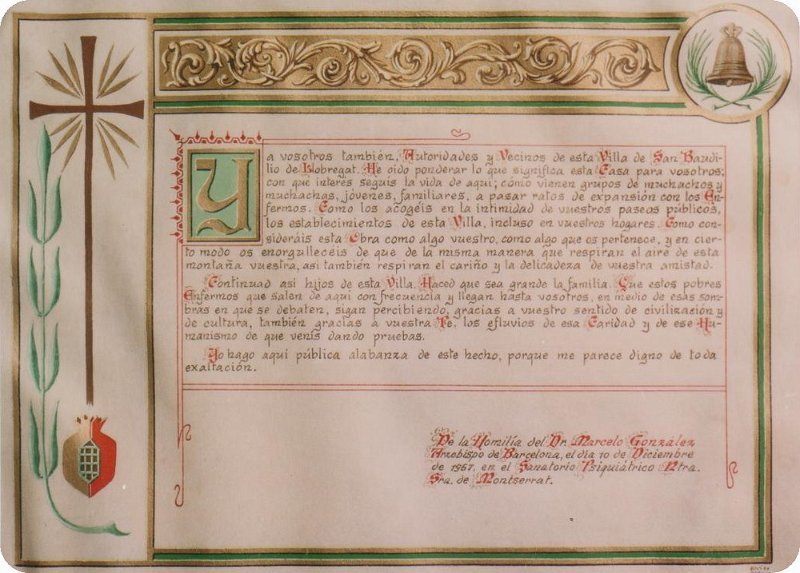 Y a vosotros también, Autoridades y Vecinos de esta Villa de San Baudi-
lio de Llobregat. He oido ponderar lo que significa esta Casa para vosotros;
con qué interés seguís la vida de aquí; cómo vienen grupos de muchachos y
muchachas, jóvenes, familiares, a pasar ratos de expansión con los En-
fermos. Como los acogéis en la intimidad de vuestros paseos públicos,
los establecimientos de esta Villa, incluso en vuestros hogares. Como con-
sideráis esta Obra como algo vuestro, como algo que os pertenece, y en cier-
to modo os enorgulleceis de que de la misma manera que respiran el aire de esta
montaña vuestra, así también respiran el cariño y la delicadeza de vuestra amistad.
Continuad así hijos de esta Villa. Haced que sea grande la familia. Que estos pobres
Enfermos que salen de aquí con frecuencia y llegan hasta vosotros, en medio de esas som-
bras en que se debaten, sigan percibiendo, gracias a vuestro sentido de civilización y
de cultura, también gracias a vuestra Fe, los efluvios de esa Caridad y de ese Hu-
manismo de que venís dando pruebas.
Yo hago aquí pública alabanza de este hecho, porque me parece digno de toda
exaltación.
De la Homilía del Dr. Marcelo González
Arzobispo de Barcelona, el día 10 de Diciembre
de 1967, en el Sanatorio Psiquiátrico Ntra.
Sra. de Montserrat.